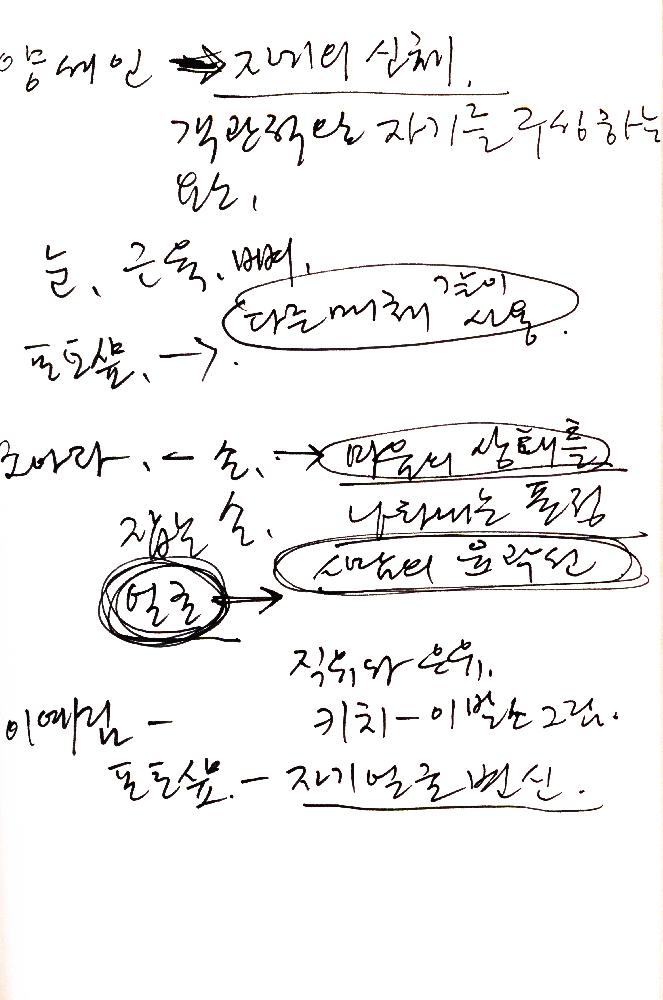 양세인 → 자매의 신체.
객관적인 자기를 구상하는
요소.
눈、근육、뼈.
다른매체 같이 사용.
포토샵. →.
조아라. ← 손. → 마음의 상태를
잡는 손. 나타내는 표정
얼굴 → 사람의 윤곽선
직위와 은유.
키치 - 이발소그림.
이예림 -
포토샵. - 자기얼굴변신.